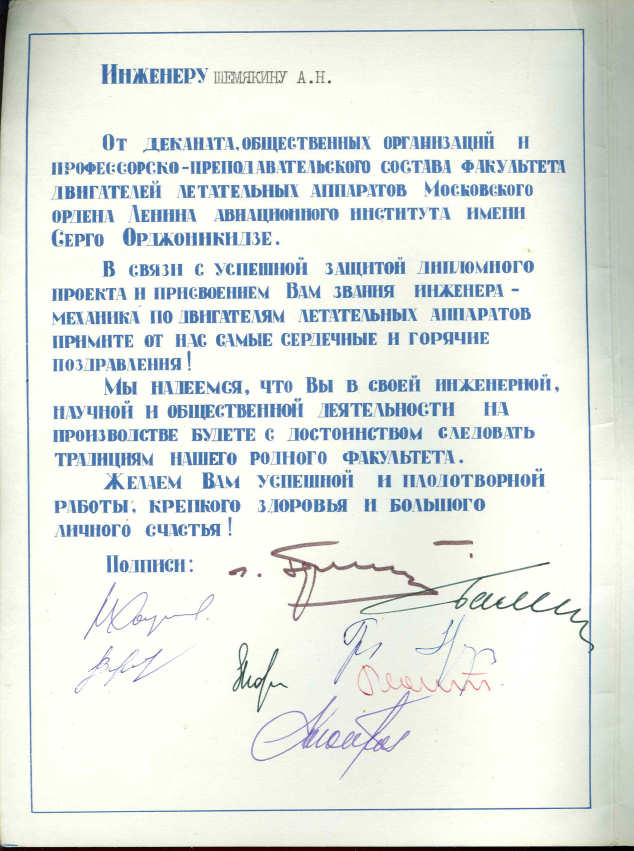 Инженеру ШЕМЯКИНУ А.Н.
От деканата, общественных организаций и
профессорско-преподавательского состава факультета
двигателей летательных аппаратов Московского
ордена Ленина авиационного института имени
Серго Орджоникидзе.
В связи с успешной защитой дипломного
проекта и присвоением Вам звания инженера-
механика по двигателям летательных аппаратов
примите от нас самые сердечные и горячие
поздравления!
Мы надеемся, что Вы в своей инженерной,
научной и общественной деятельности на
производстве будете с достоинством следовать
традициям нашего родного факультета.
Желаем Вам успешной и плодотворной
работы, крепкого здоровья и большого
личного счастья!
Подписи: